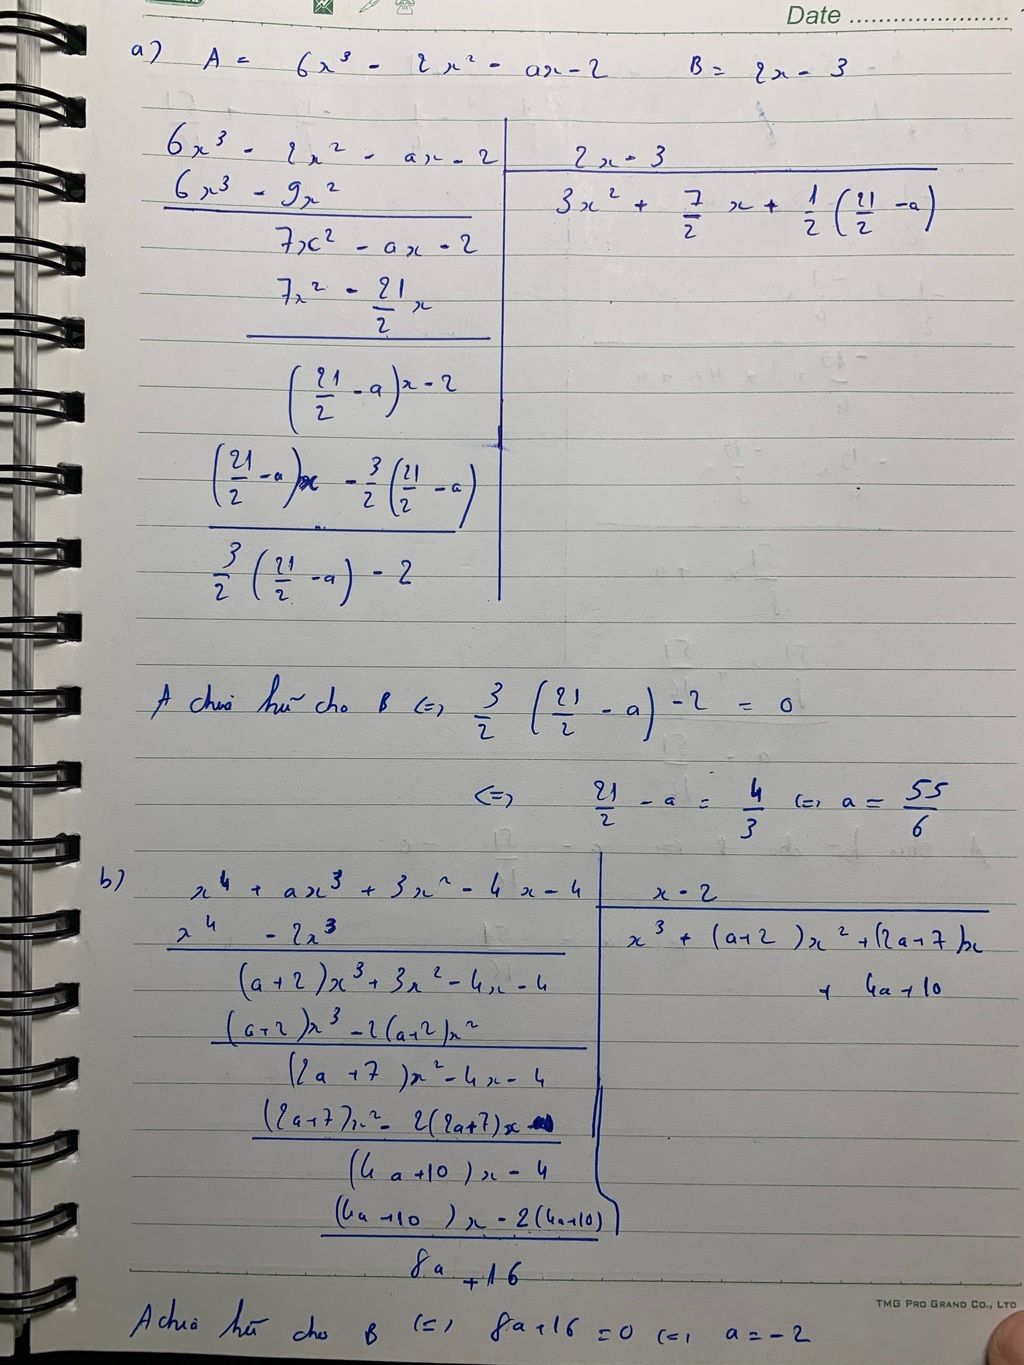 Date
a) A = 6x³ - 2x² - ax - 2 B = 2x - 3
6x³ - 2x² - ax - 2 | 2x - 3
6x³ - 9x² | 3x² + 7/2 x + 1/2 (21/2 - a)
7x² - ax - 2
7x² - 21/2 x
(21/2 - a) x - 2
(21/2 - a) x - 3/2 (21/2 - a)
3/2 (21/2 - a) - 2
A chia hết cho B <=> 3/2 (21/2 - a) - 2 = 0
<=> 21/2 - a = 4/3 <=> a = 55/6
b) x⁴ + ax³ + 3x² - 4x - 4 | x - 2
x⁴ - 2x³ | x³ + (a+2)x² + (2a+7)x
+ 4a+10
(a+2)x³ + 3x² - 4x - 4
(a+2)x³ - 2(a+2)x²
(2a+7)x² - 4x - 4
(2a+7)x² - 2(2a+7)x
(4a+10)x - 4
(4a+10)x - 2(4a+10)
8a + 16
TMG PRO GRAND CO., LTD
A chia hết cho B <=> 8a+16 = 0 <=> a = -2